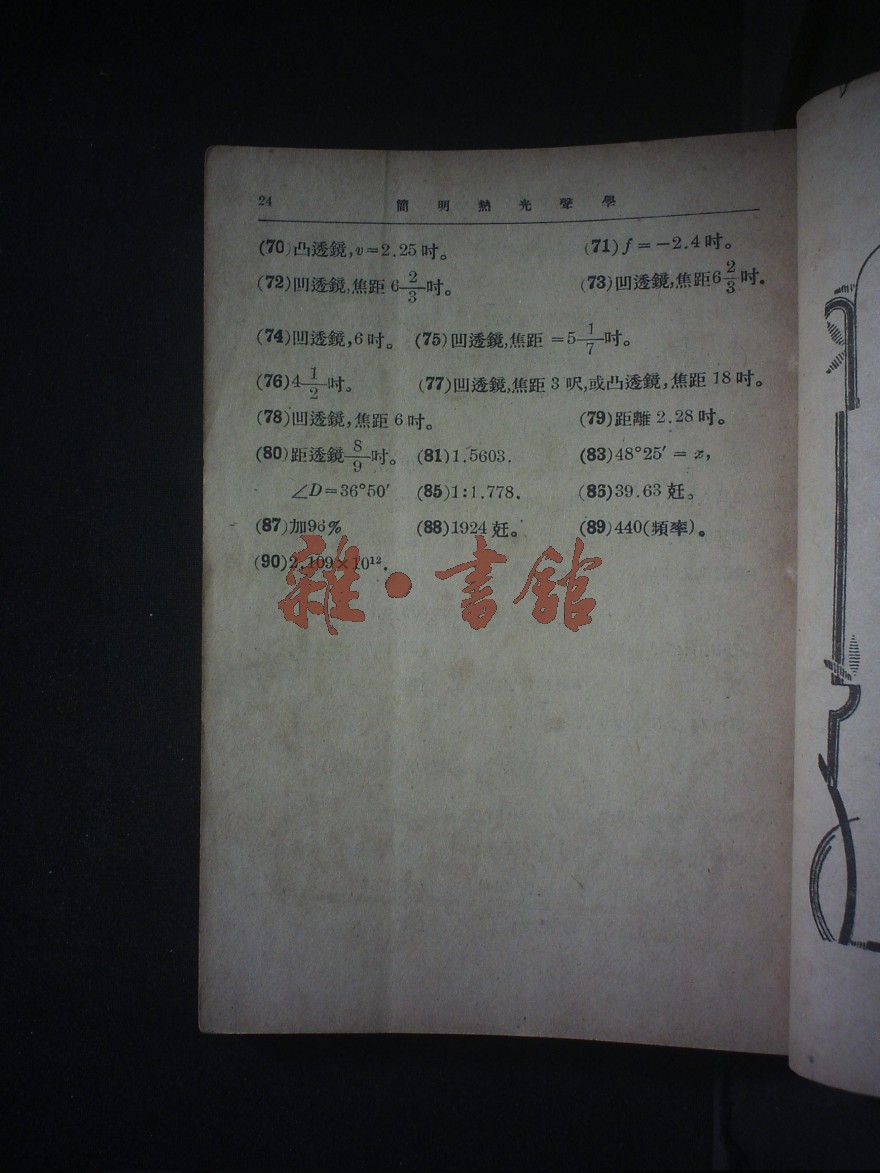 24 簡明熱光聲學
(70)凸透鏡,v=2.25吋。 (71)f=−2.4吋。
(72)凹透鏡,焦距6 2/3吋。 (73)凹透鏡,焦距6 2/3吋.
(74)凹透鏡,6吋。 (75)凹透鏡,焦距=5 1/7吋。
(76)4 1/2吋。 (77)凹透鏡,焦距3呎,或凸透鏡,焦距18吋。
(78)凹透鏡,焦距6吋。 (79)距離2.28吋。
(80)距透鏡8/9吋。 (81)1.5603. (83)48°25′=x,
∠D=36°50′ (85)1:1.778. (86)39.63兙。
(87)加96% (88)1924兙。 (89)440(頻率)。
(90)2.109×10¹².
雜·書館